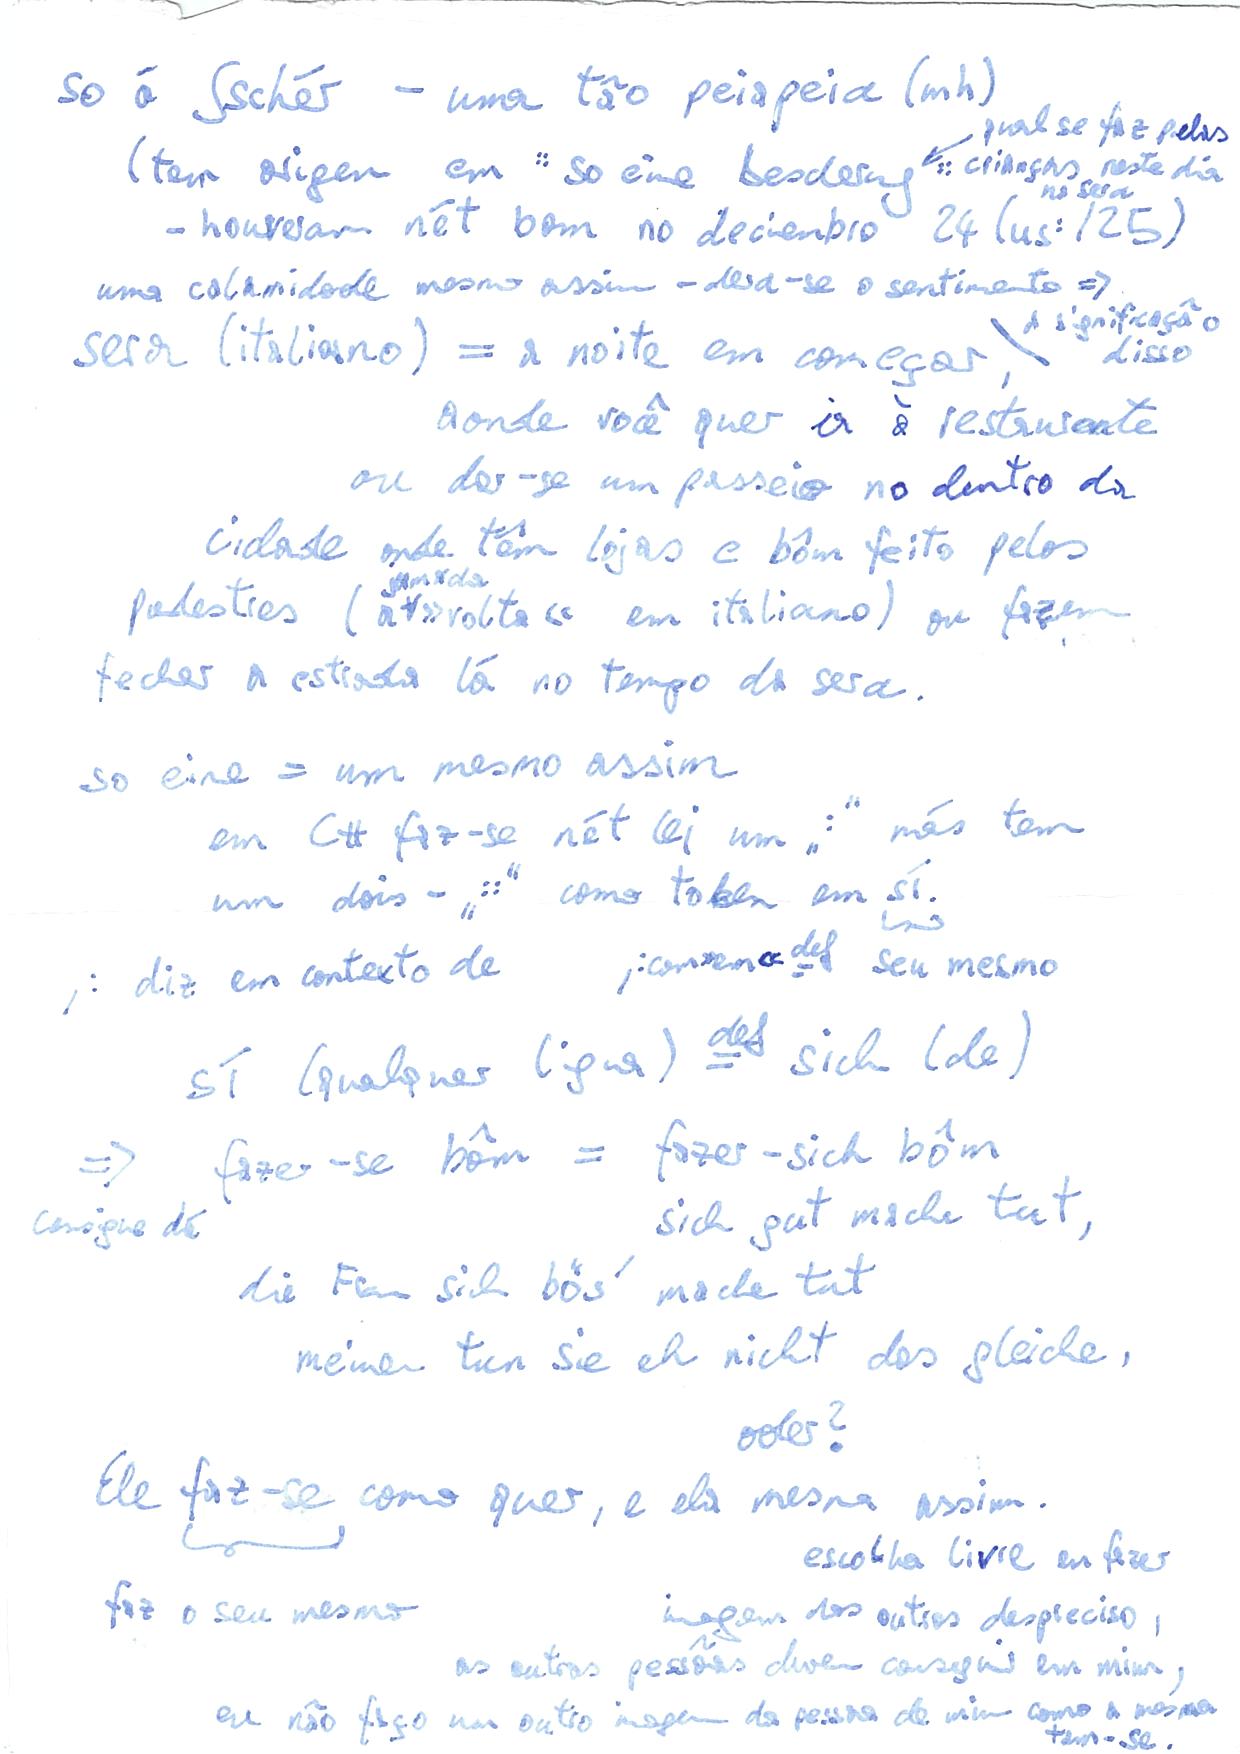 so á ʃschér - uma tão peiapeia (mh)
qual se faz pelas
(tem origem em " so eine besderng " :: crianças neste dia
na sera
- houveram nét bom no deciembro 24 (us: /25)
uma calamidade mesmo assim - dera-se o sentimento =>
a significação
sera (italiano) = a noite em começar, disso
aonde você quer ir à restaurante
ou dar-se um passeio no dentro da
cidade onde têm lojas e bôm feito pelos
pedestres ( »volta« em italiano) ou fazem
fechar a estrada lá no tempo da sera.
so eine = um mesmo assim
em C# faz-se nét lej um „:“ más tem
um dois - „::“ como token em sí.
,: diz em contexto de ,: def= seu mesmo
sí (qualquer ligua) def= sich (de)
=> fazer-se bôm = fazer-sich bôm
consigue dá sich gut mache tut,
die Frau sich bös' mache tut
meinen tun sie eh nicht das gleiche,
oder?
Ele faz-se como quer, e ela mesma assim.
escolha livre en fazer
faz o seu mesmo imagem dos outros despreciso,
as outras pessôas devem conseguir em mim,
eu não faço um outro imagem da pessoa de mim como a mesma
tem-se.